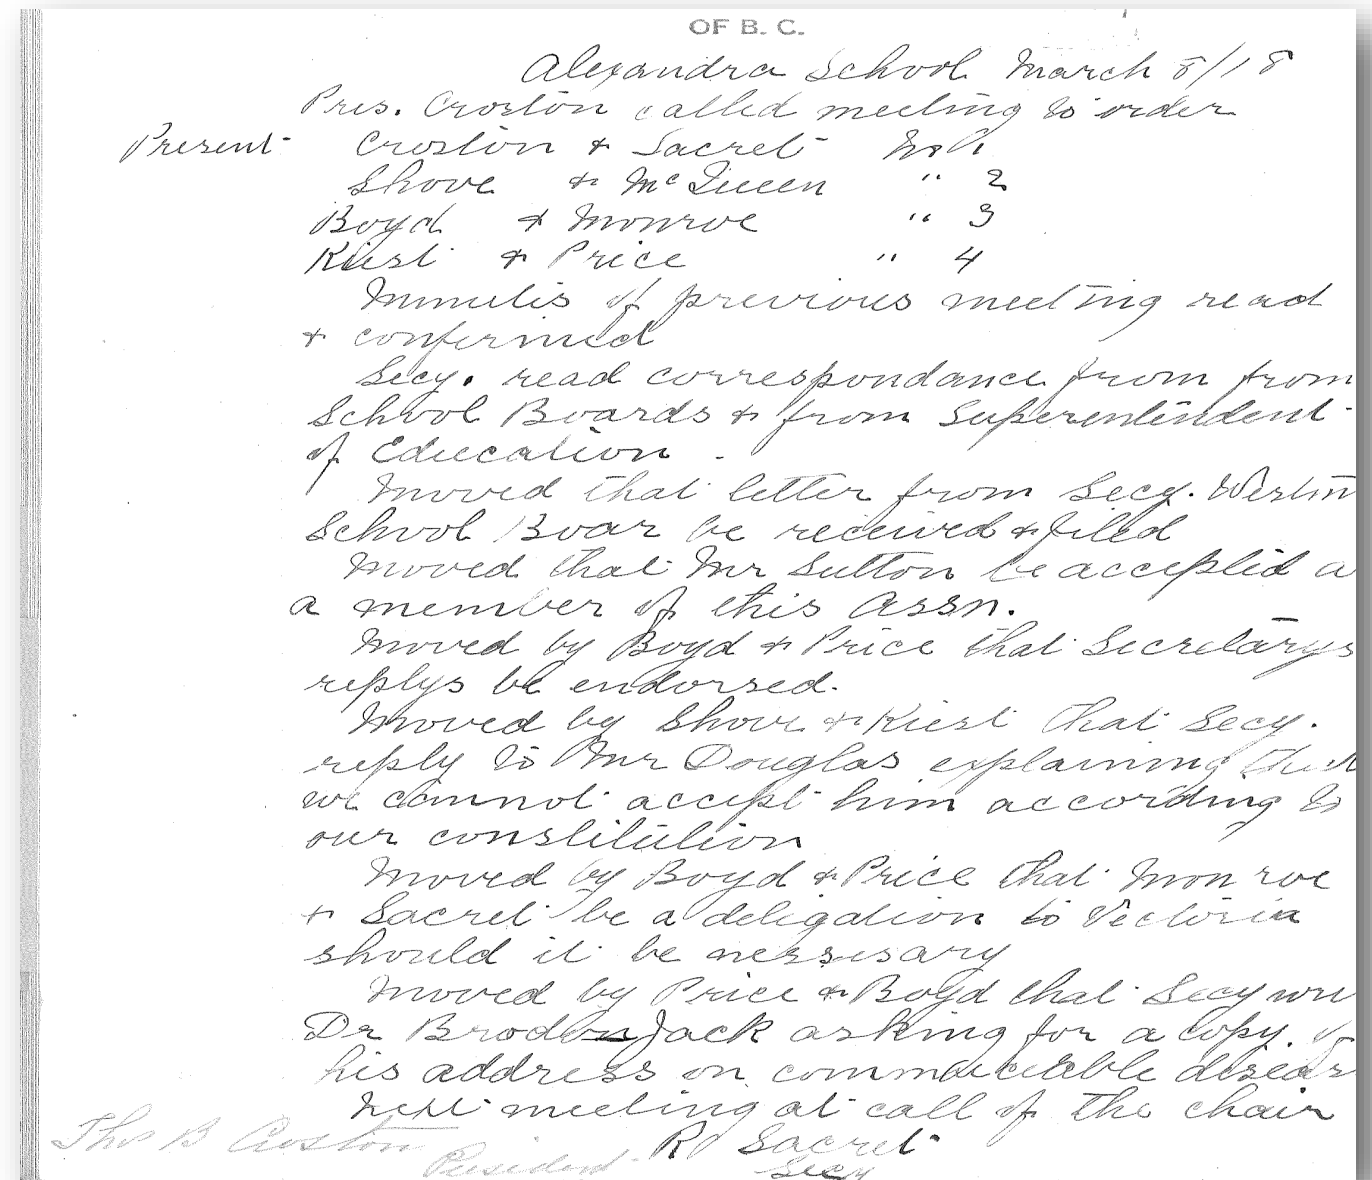 OF B. C.
Alexandra School March 8/18
Pres. Croston called meeting to order
Present Croston & Sacret No 1
Shove & McQueen " 2
Boyd & Monroe " 3
Kiest & Price " 4
Minutes of previous meeting read
& confirmed
Secy. read correspondance from from
School Boards & from Superentendent
of Education .
Moved that letter from Secy.
School Boar be received & filed
Moved that Mr Sutton be accepted a
a member of this Assn.
Moved by Boyd & Price that Secretarys
replys be endorsed.
Moved by Shove & Kiest that Secy.
reply to Mr Douglas explaining that
we cannot accept him according to
our constitution
Moved by Boyd & Price that Monroe
& Sacret be a delegation to Victoria
should it be nessesary
Moved by Price & Boyd that Secy wri
Dr Jack asking for a copy. of
his address on diseas
Next meeting at call of the chair
Thos B Croston President R Sacret
Secy